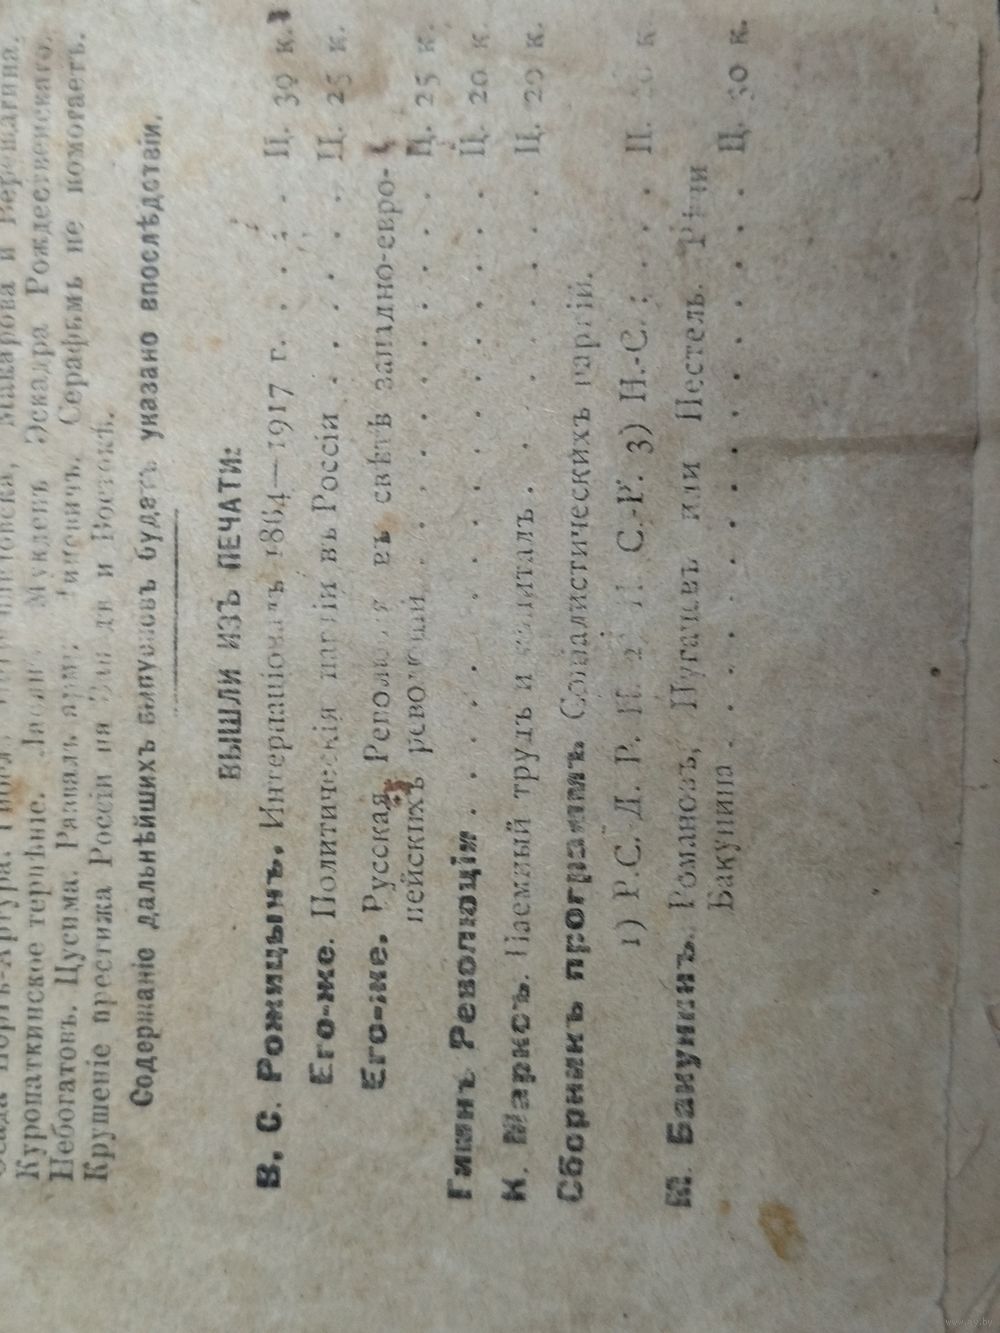 Макарова и Верещагина.
Куропаткинское терпѣніе. Мукденъ. Эскадра Рождественскаго.
Небогатовъ. Цусима. Развалъ арміи. Серафимъ не помогаетъ.
Крушеніе престижа Россіи на Западѣ и Востокѣ.
Содержаніе дальнѣйшихъ выпусковъ будетъ указано впослѣдствіи.
ВЫШЛИ ИЗЪ ПЕЧАТИ:
В. С. Рожицынъ. Интернаціоналъ 1864—1917 г. . . . . Ц. 30 к.
Его-же. Политическія партіи въ Россіи . . . . . . Ц. 25 к.
Его-же. Русская Революція въ свѣтѣ западно-евро-
пейскихъ революцій . . . . . . . . . . Ц. 25 к.
Гимнъ Революціи . . . . . . . . . . . . . Ц. 20 к.
К. Марксъ. Наемный трудъ и капиталъ . . . . . . . Ц. 20 к.
Сборникъ программъ Соціалистическихъ партій.
1) Р.С.Д.Р.П. 2) П. С.-Р. 3) Н.-С. . . . . Ц. к.
М. Бакунинъ. Романовъ, Пугачевъ или Пестель. Рѣчи
Бакунина . . . . . . . . . . . . . . Ц. 30 к.
www.ay.by